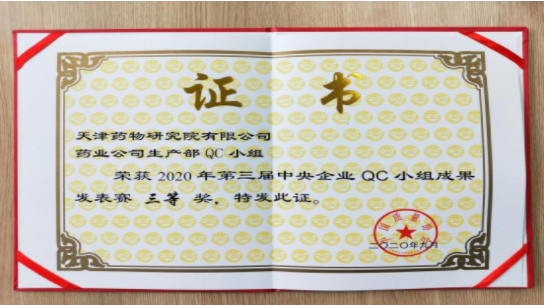 证书
天津药物研究院有限公司
药业公司生产部 QC 小组
荣获 2020 年第三届中央企业 QC 小组成果
发表赛 三等 奖，特发此证。
二〇二〇年九月